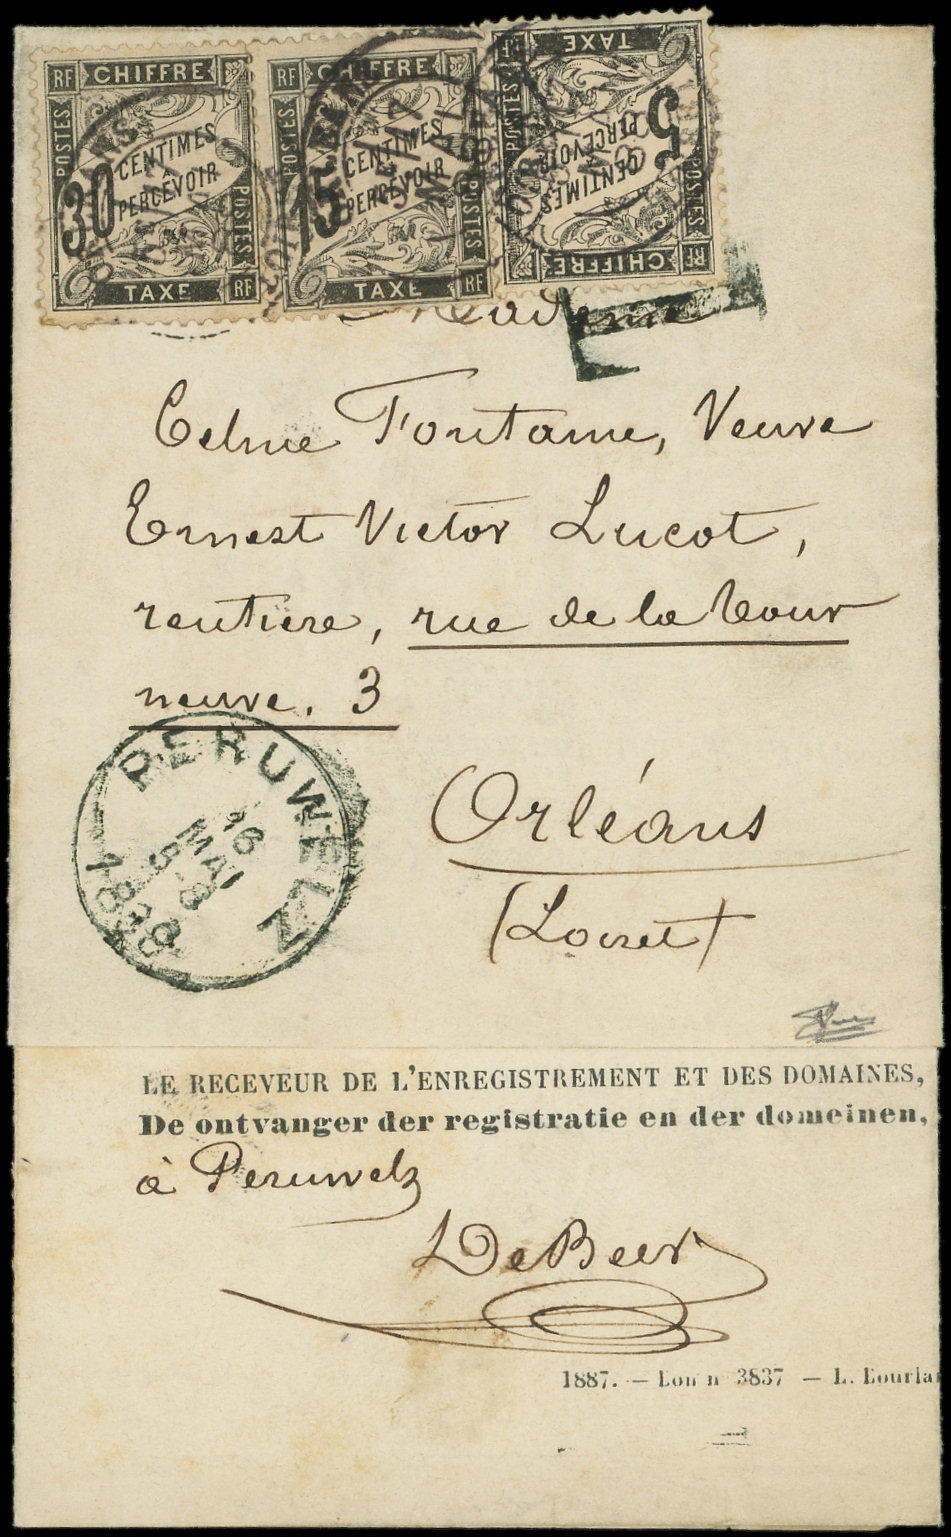 RF CHIFFRE RF
POSTES
30 CENTIMES
À
PERCEVOIR
POSTES
TAXE RF
RF CHIFFRE
POSTES
15 CENTIMES
À
PERCEVOIR
POSTES
TAXE RF
CHIFFRE
POSTES
5 CENTIMES
À
PERCEVOIR
POSTES
TAXE
T
Madame
Celine Fontaine, Veuve
Ernest Victor Lucot,
rentière, rue de la Tour
neuve. 3
Orléans
(Loiret)
PERUWELZ
16
MAI
5-8
1888
LE RECEVEUR DE L'ENREGISTREMENT ET DES DOMAINES,
De ontvanger der registratie en der domeinen,
à Peruwelz
DeBeer
1887. — n 3837 — L. Bourla